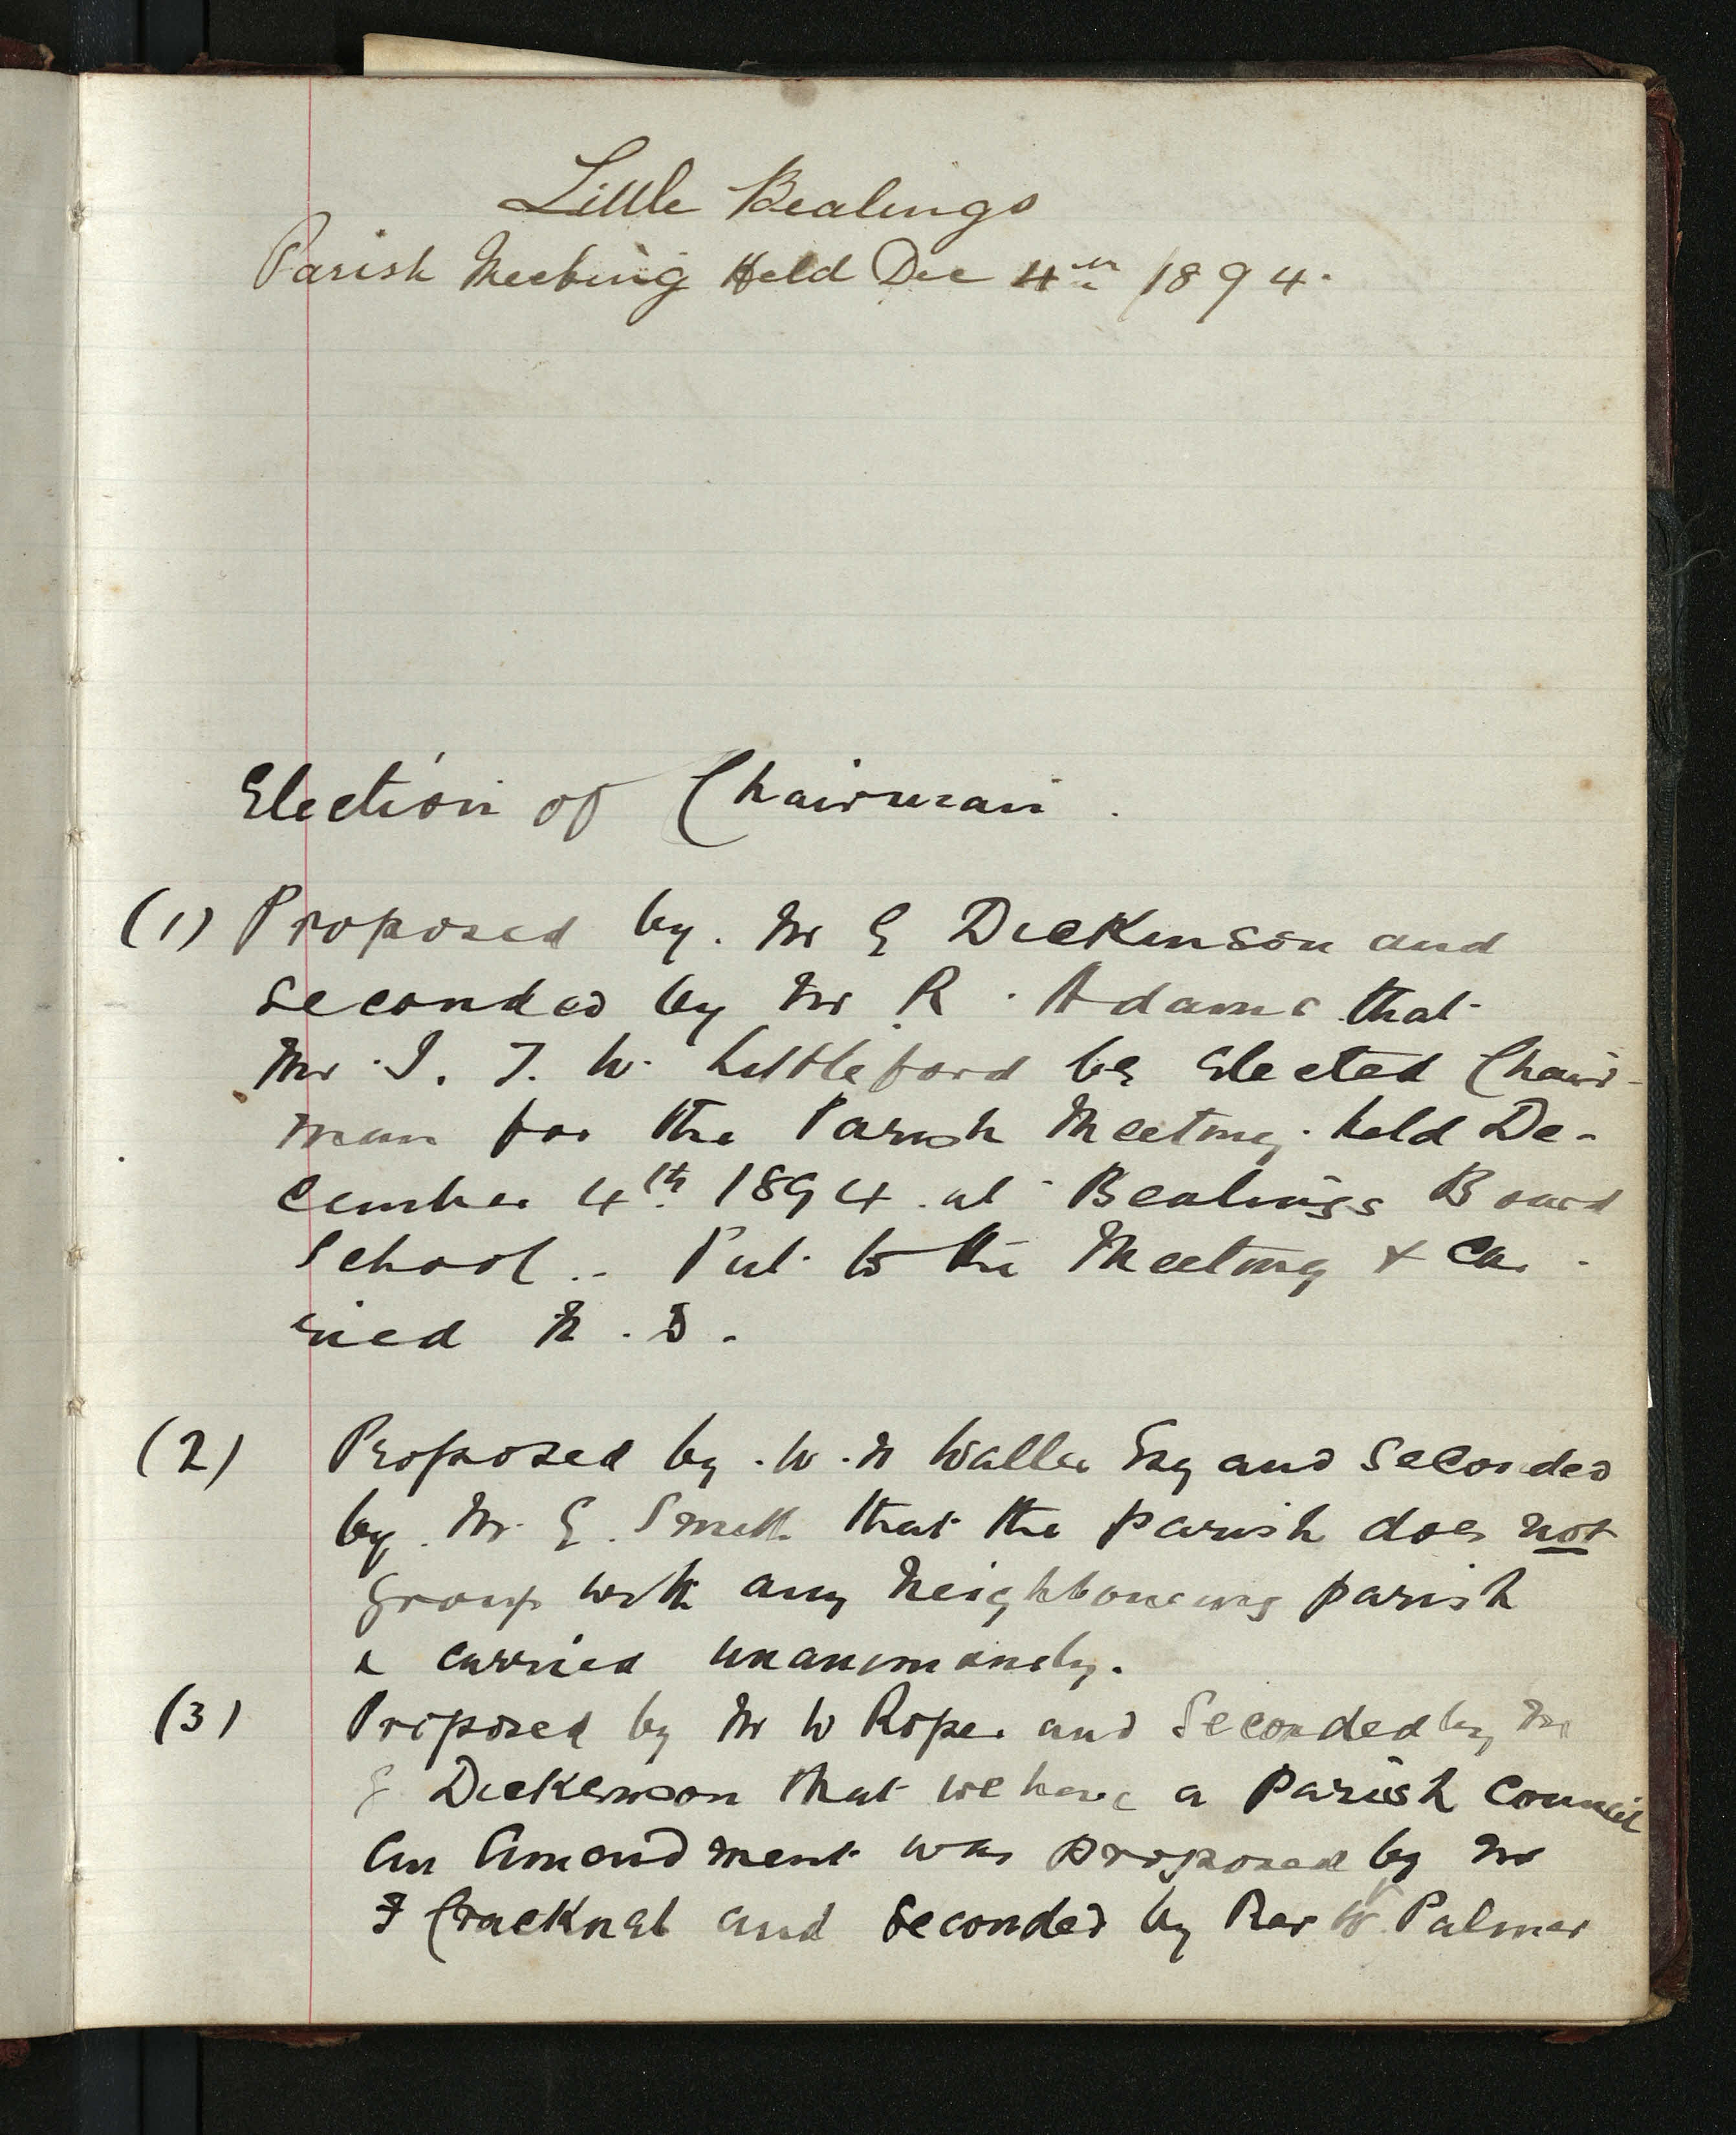 Little Bealings
Parish Meeting Held Dec 4th 1894.
Election of Chairman.
(1) Proposed by. Mr E Dickenson and
seconded by Mr R. Adams that
Mr. J. T. W. Littleford be elected Chair-
man for the Parish Meeting. held De-
cember 4th. 1894. at Bealings Board
School.. Put to the Meeting & Car-
ried
(2) Proposed by. W. N Waller Esq and Seconded
by. Mr. E. Smith that the parish does not
group with any neighbouring parish
& carried unanimously.
(3) Proposed by Mr W Roper and Seconded by Mr
E Dickenson that we have a Parish Council
An Amendment was proposed by Mr
F Cracknel and seconded by Rev W Palmer